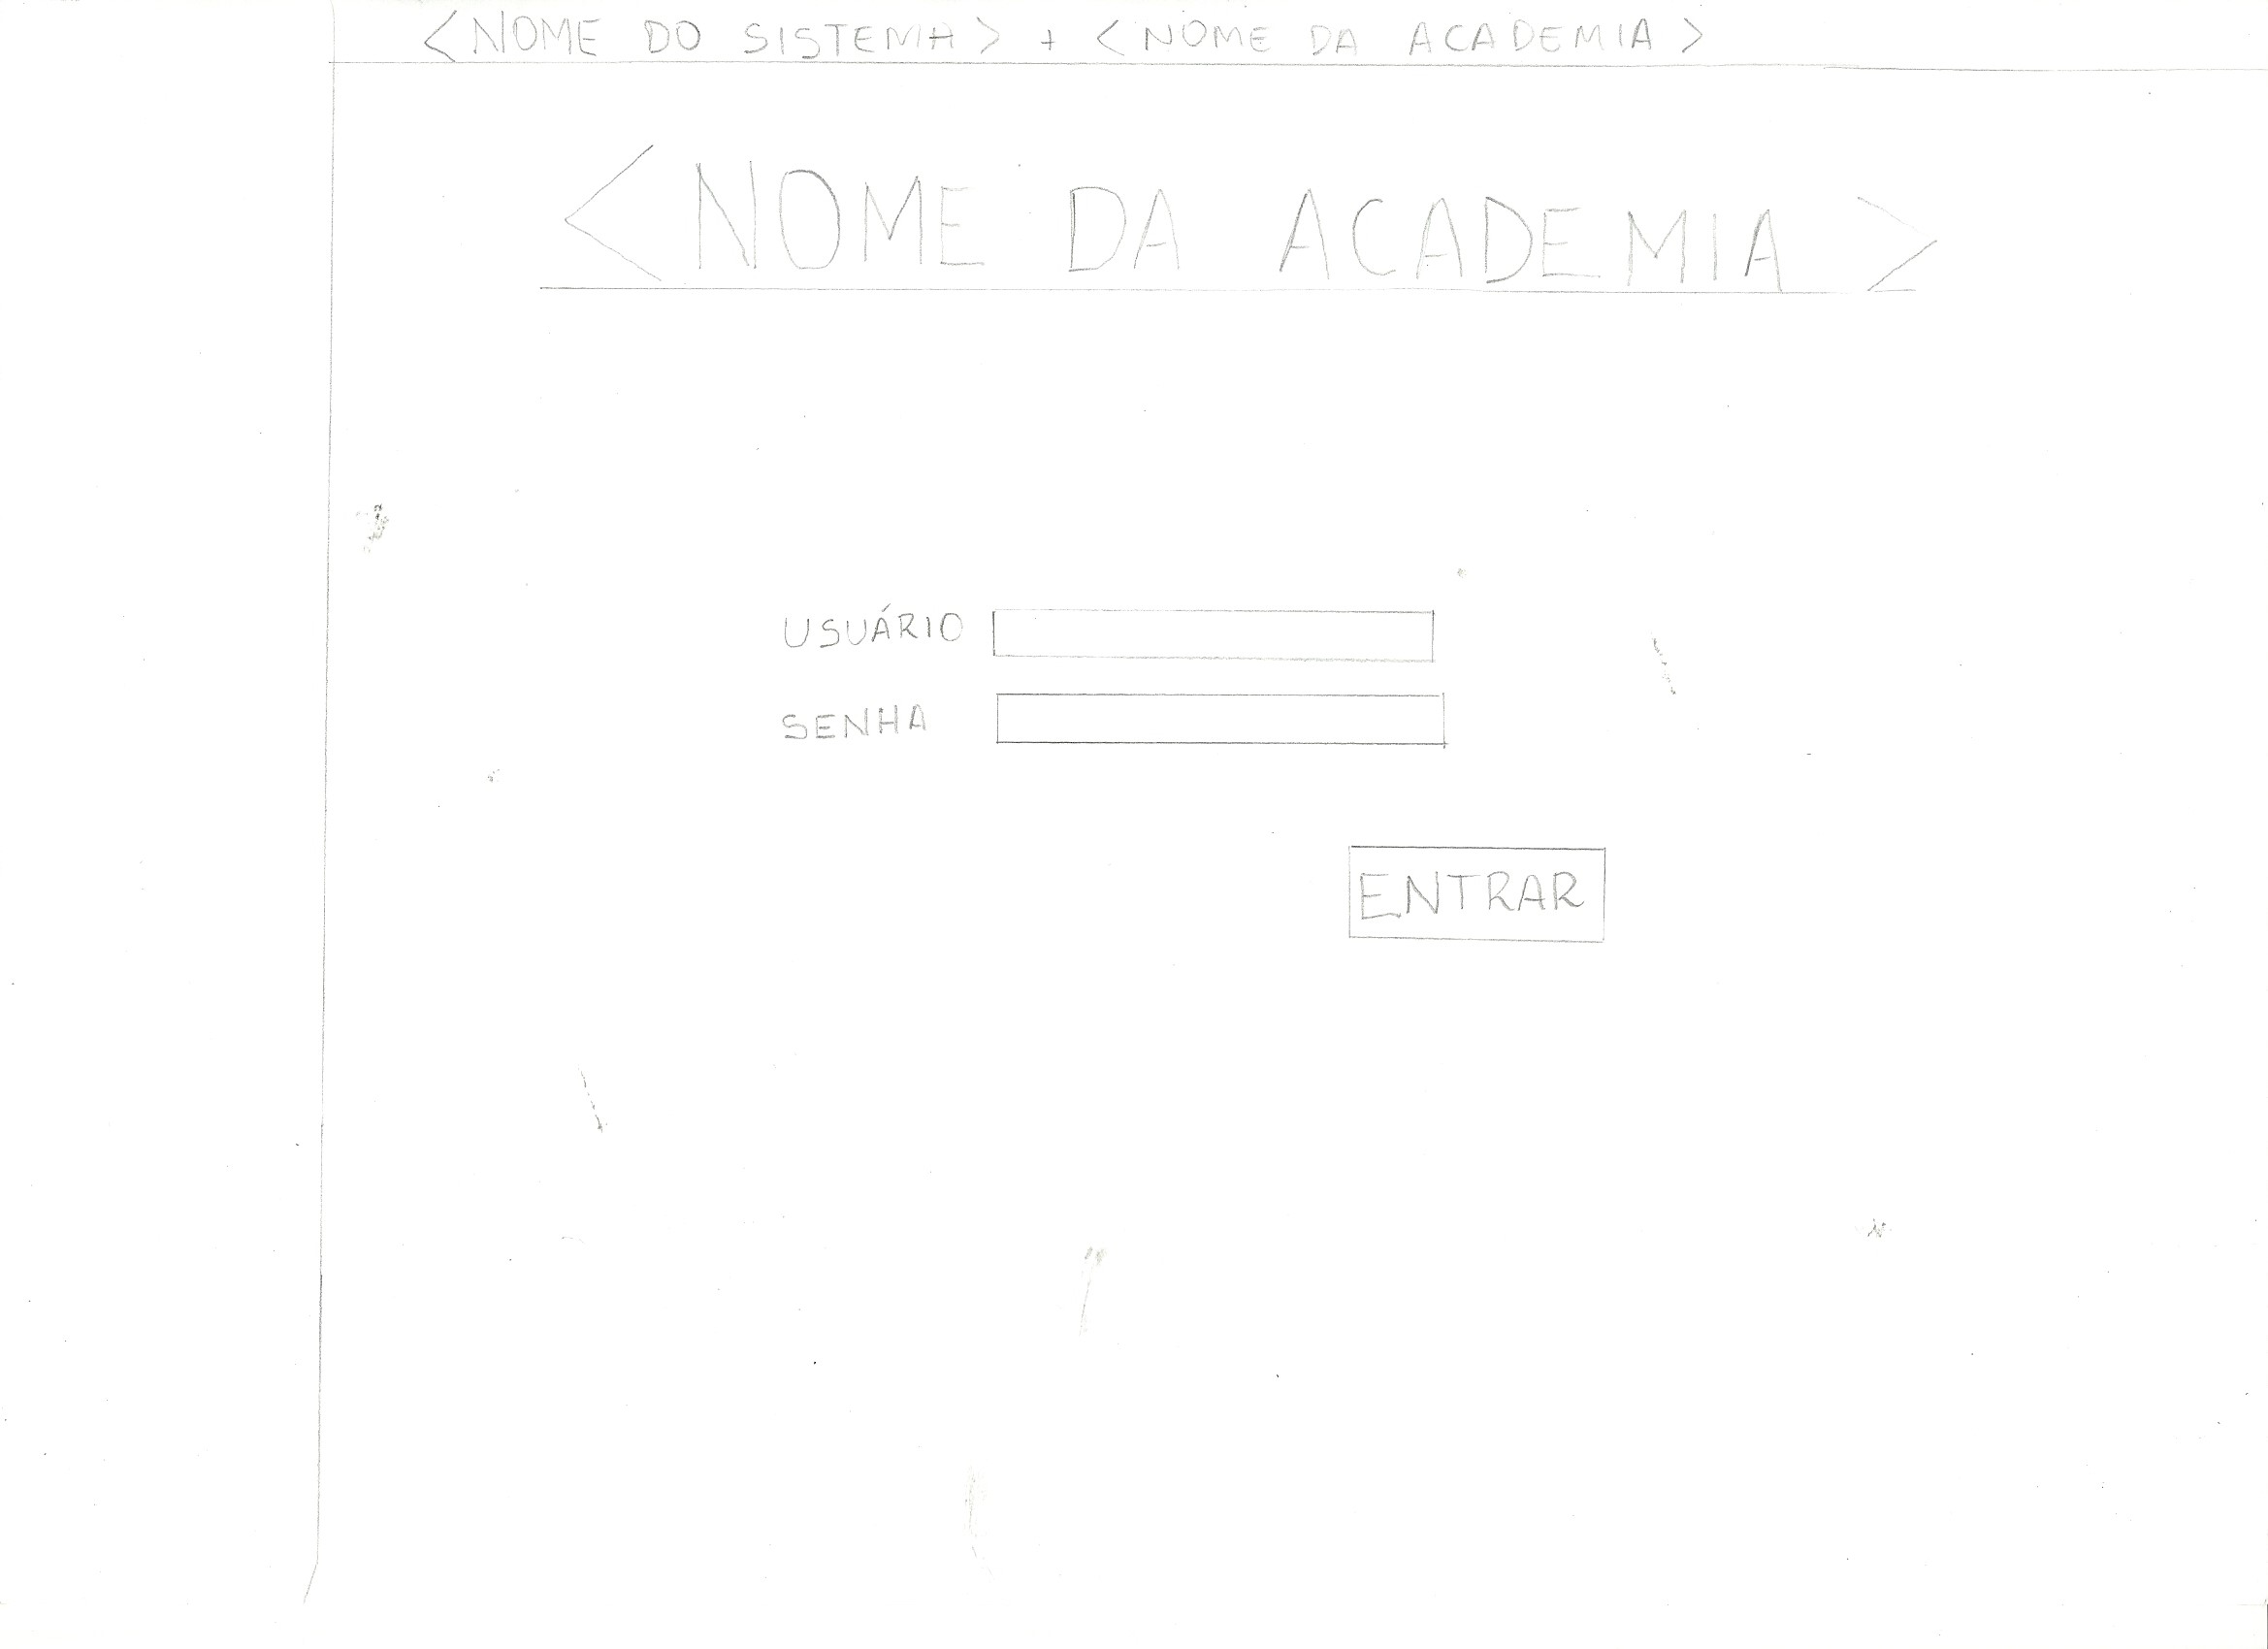 <NOME DO SISTEMA> + <NOME DA ACADEMIA>
<NOME DA ACADEMIA>
USUÁRIO
SENHA
ENTRAR